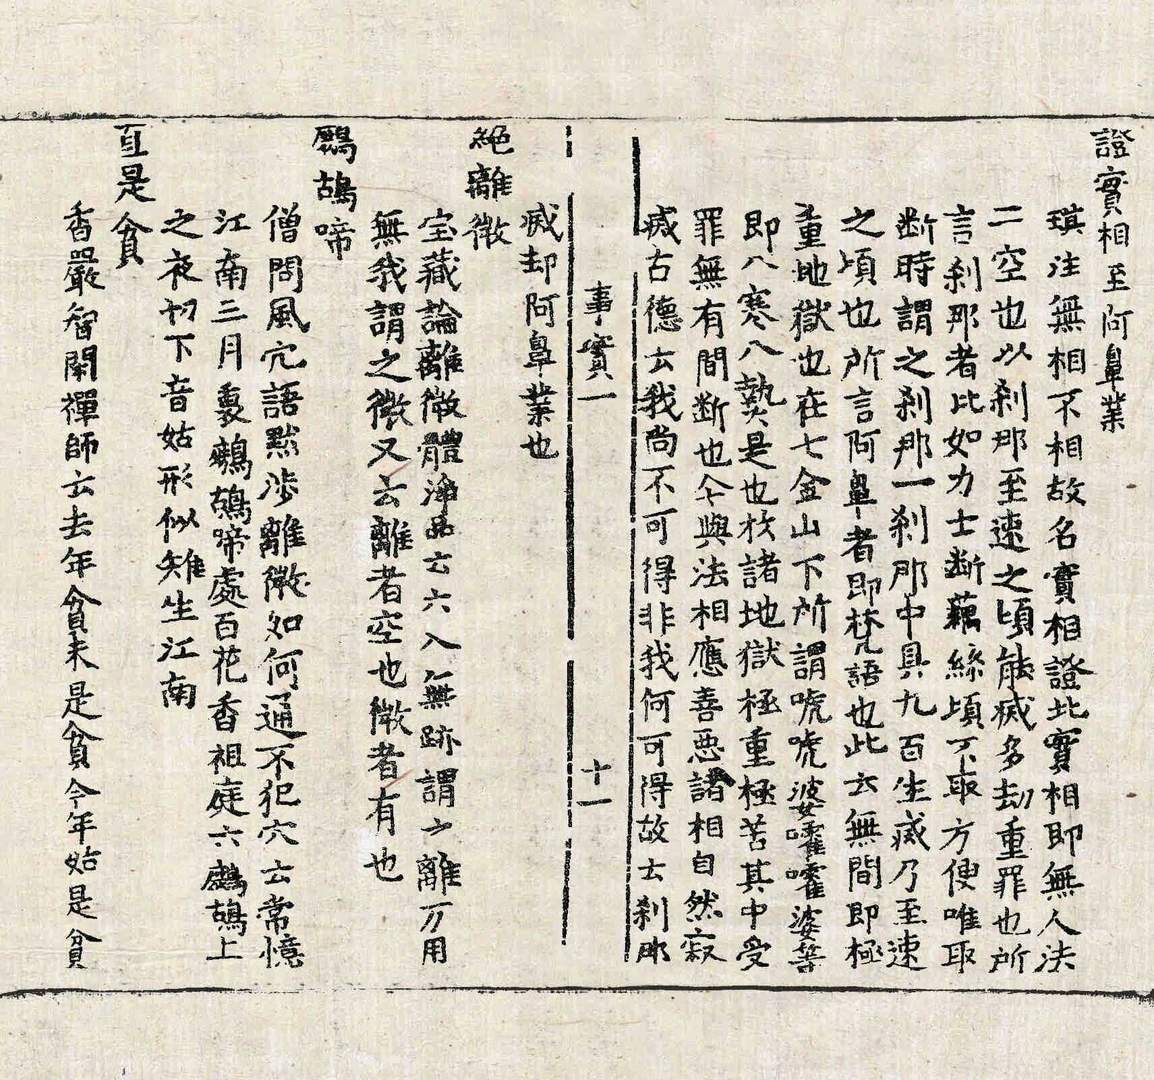 證實相至阿鼻業
琪注無相不相故名實相證此實相即無人法
二空也以刹那至速之頃能㓕多刧重罪也所
言刹那者比如力士断藕絲頃不取方便唯取
断時謂之刹那一刹那中具九百生㓕乃至速
之頃也所言阿鼻者即梵語也此云無間即極
重地獄也在七金山下所謂唬唬婆嚯嚯婆等
即八寒八𤍠是也於諸地獄極重極苦其中受
罪無有間断也今與法相應善惡諸相自然寂
㓕古德云我尚不可得非我何可得故云刹那
事實一 十一
㓕却阿鼻業也
絶離微
宝藏論離微體淨品云六入無跡謂之離万用
無我謂之微又云離者空也微者有也
鷓鴣啼
僧問風穴語黙渉離微如何通不犯穴云常憶
江南三月裏鷓鴣啼處百花香祖庭云鷓鴣上
之夜切下音姑形似雉生江南
直是貧
香嚴智閑禪師云去年貧未是貧今年始是貧